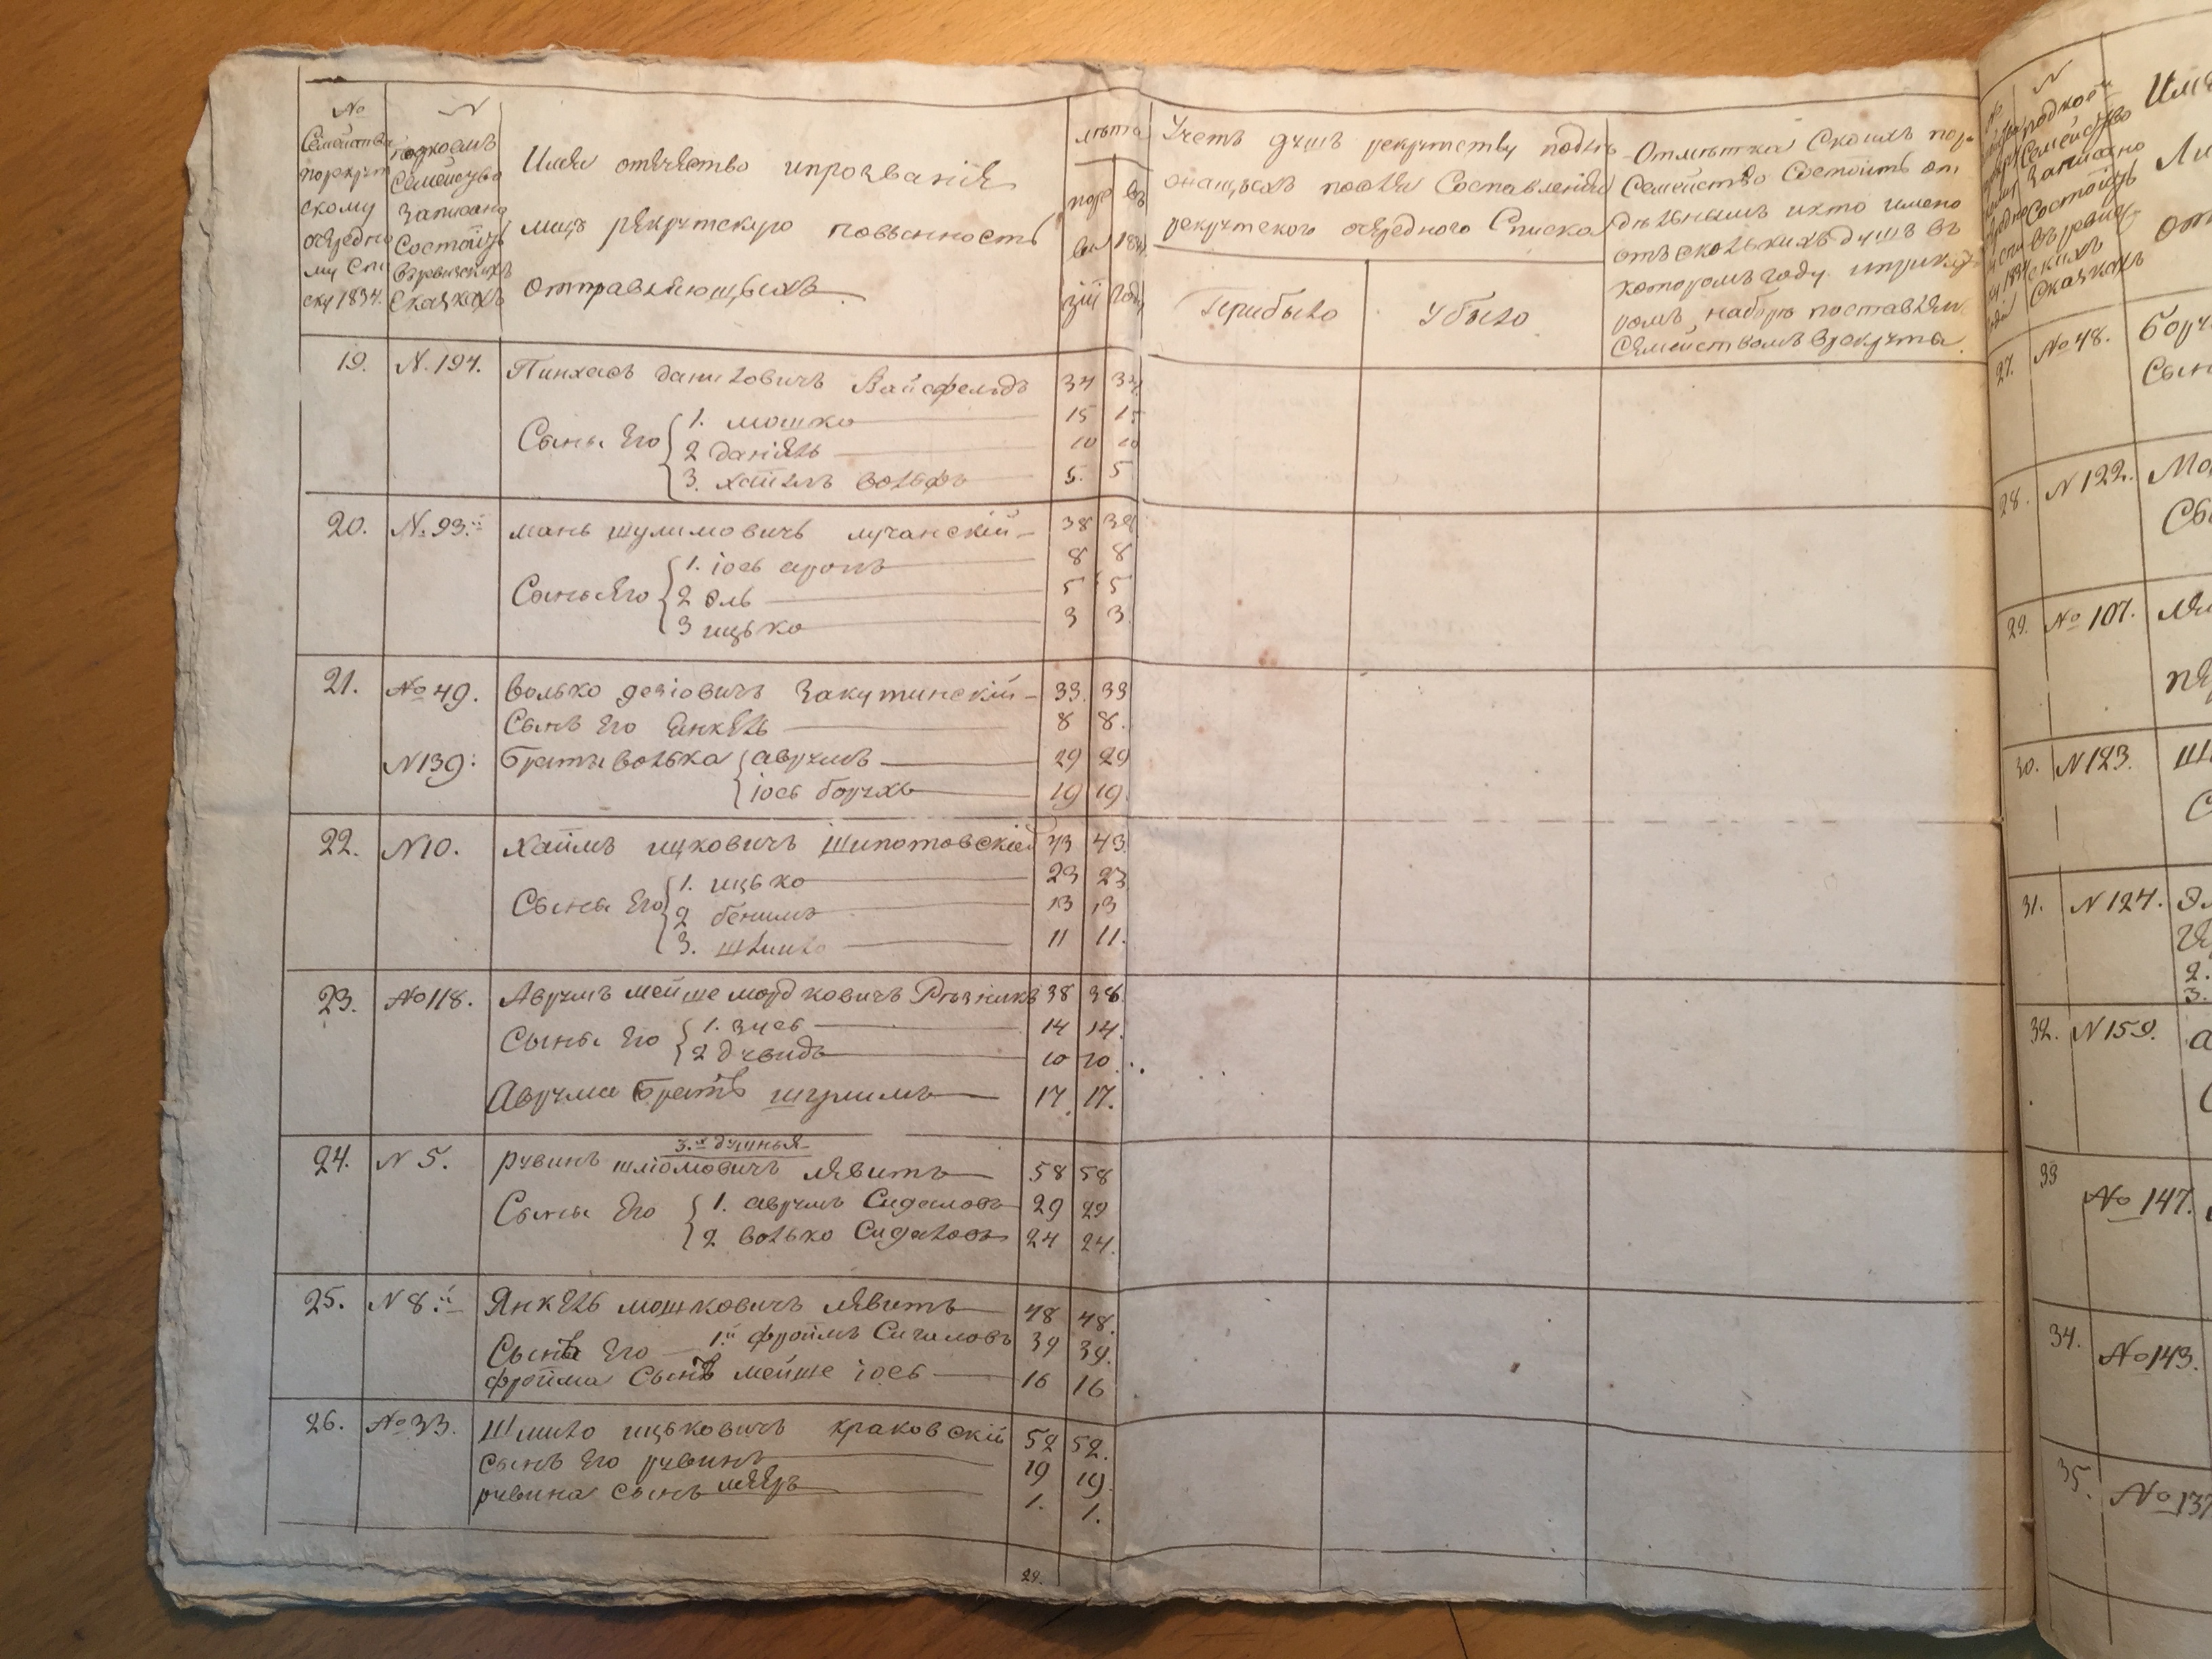 №
Семейства
по рекрут
скому
очередно
му спи
ску 1834.
N
подкоемъ
Семейство
Записано
Состоитъ
въ ревизскихъ
Сказкахъ
Имя отечество ипрозваніе
лицъ рекрутскую повинность
отправляющихъ
лѣта
по ре
ви
зіи
въ
1834
году
Учетъ душъ рекрутству подле
жащихъ послѣ Составленія
рекрутского очередного Списка
Прибыло
Убыло
Отмѣтка Сколих
Семейство Состоитъ
ихто имено
отъ сколькихъ душъ въ
которомъ году
ромъ наборѣ поставлен
Семействомъ врекрута
19. N. 194. Пинхасъ даниловичъ Вайсфельдъ 34 34.
Сыны Его 1. мошко 15 15
2 даніель 10 10
3. хаимъ вольфъ 5. 5
20. № 93.й мань шулимовичъ лучанскій 38 38
Сыны Его 1. іось аронъ 8 8
2 эль 5 5
3 ицько 3 3.
21. № 49. волько Закутинскій 33. 33
Сынъ Его Енкель 8 8.
N139: Браты волька аврумъ 29 29
іось борухъ 19 19.
22. N10. Хаимъ ицковичъ Шипотовскій 43 43.
Сыны Его 1. ицько 23 23
2 бенимъ 13 13
3. шлиоло 11 11.
23. №118. Аврумъ мейше мордковичъ Рѣзникъ 38 38.
Сыны Его 1. зусь 14 14.
2 дувидъ 10 10
Аврума Братъ шулимъ 17. 17.
3.х душныя
24. N 5. рувинъ шліомовичъ левитъ 58 58
Сыны Его 1. аврумъ Сигаловъ 29 29
2 волько Сигаловъ 24 24.
25. N 8.й Янкель мошковичъ левитъ 48 48.
Сынъ Его 1.й фроимъ Сигаловъ 39 39.
фроима Сынъ мейше іось 16 16
26. №33. Шмило ицьковичъ краковскій 52 52.
Сынъ Его рувинъ 19 19.
рувина Сынъ мееръ 1. 1.
29.
N
Семейство
Записано
Состоитъ
въ ревиз
скихъ
Сказкахъ
27. №48.
Сын
28. N 122.
29. № 107.
30. N 123.
31. N 124.
2.
3.
32. N 159.
33 № 147.
34. №143.
35. №137